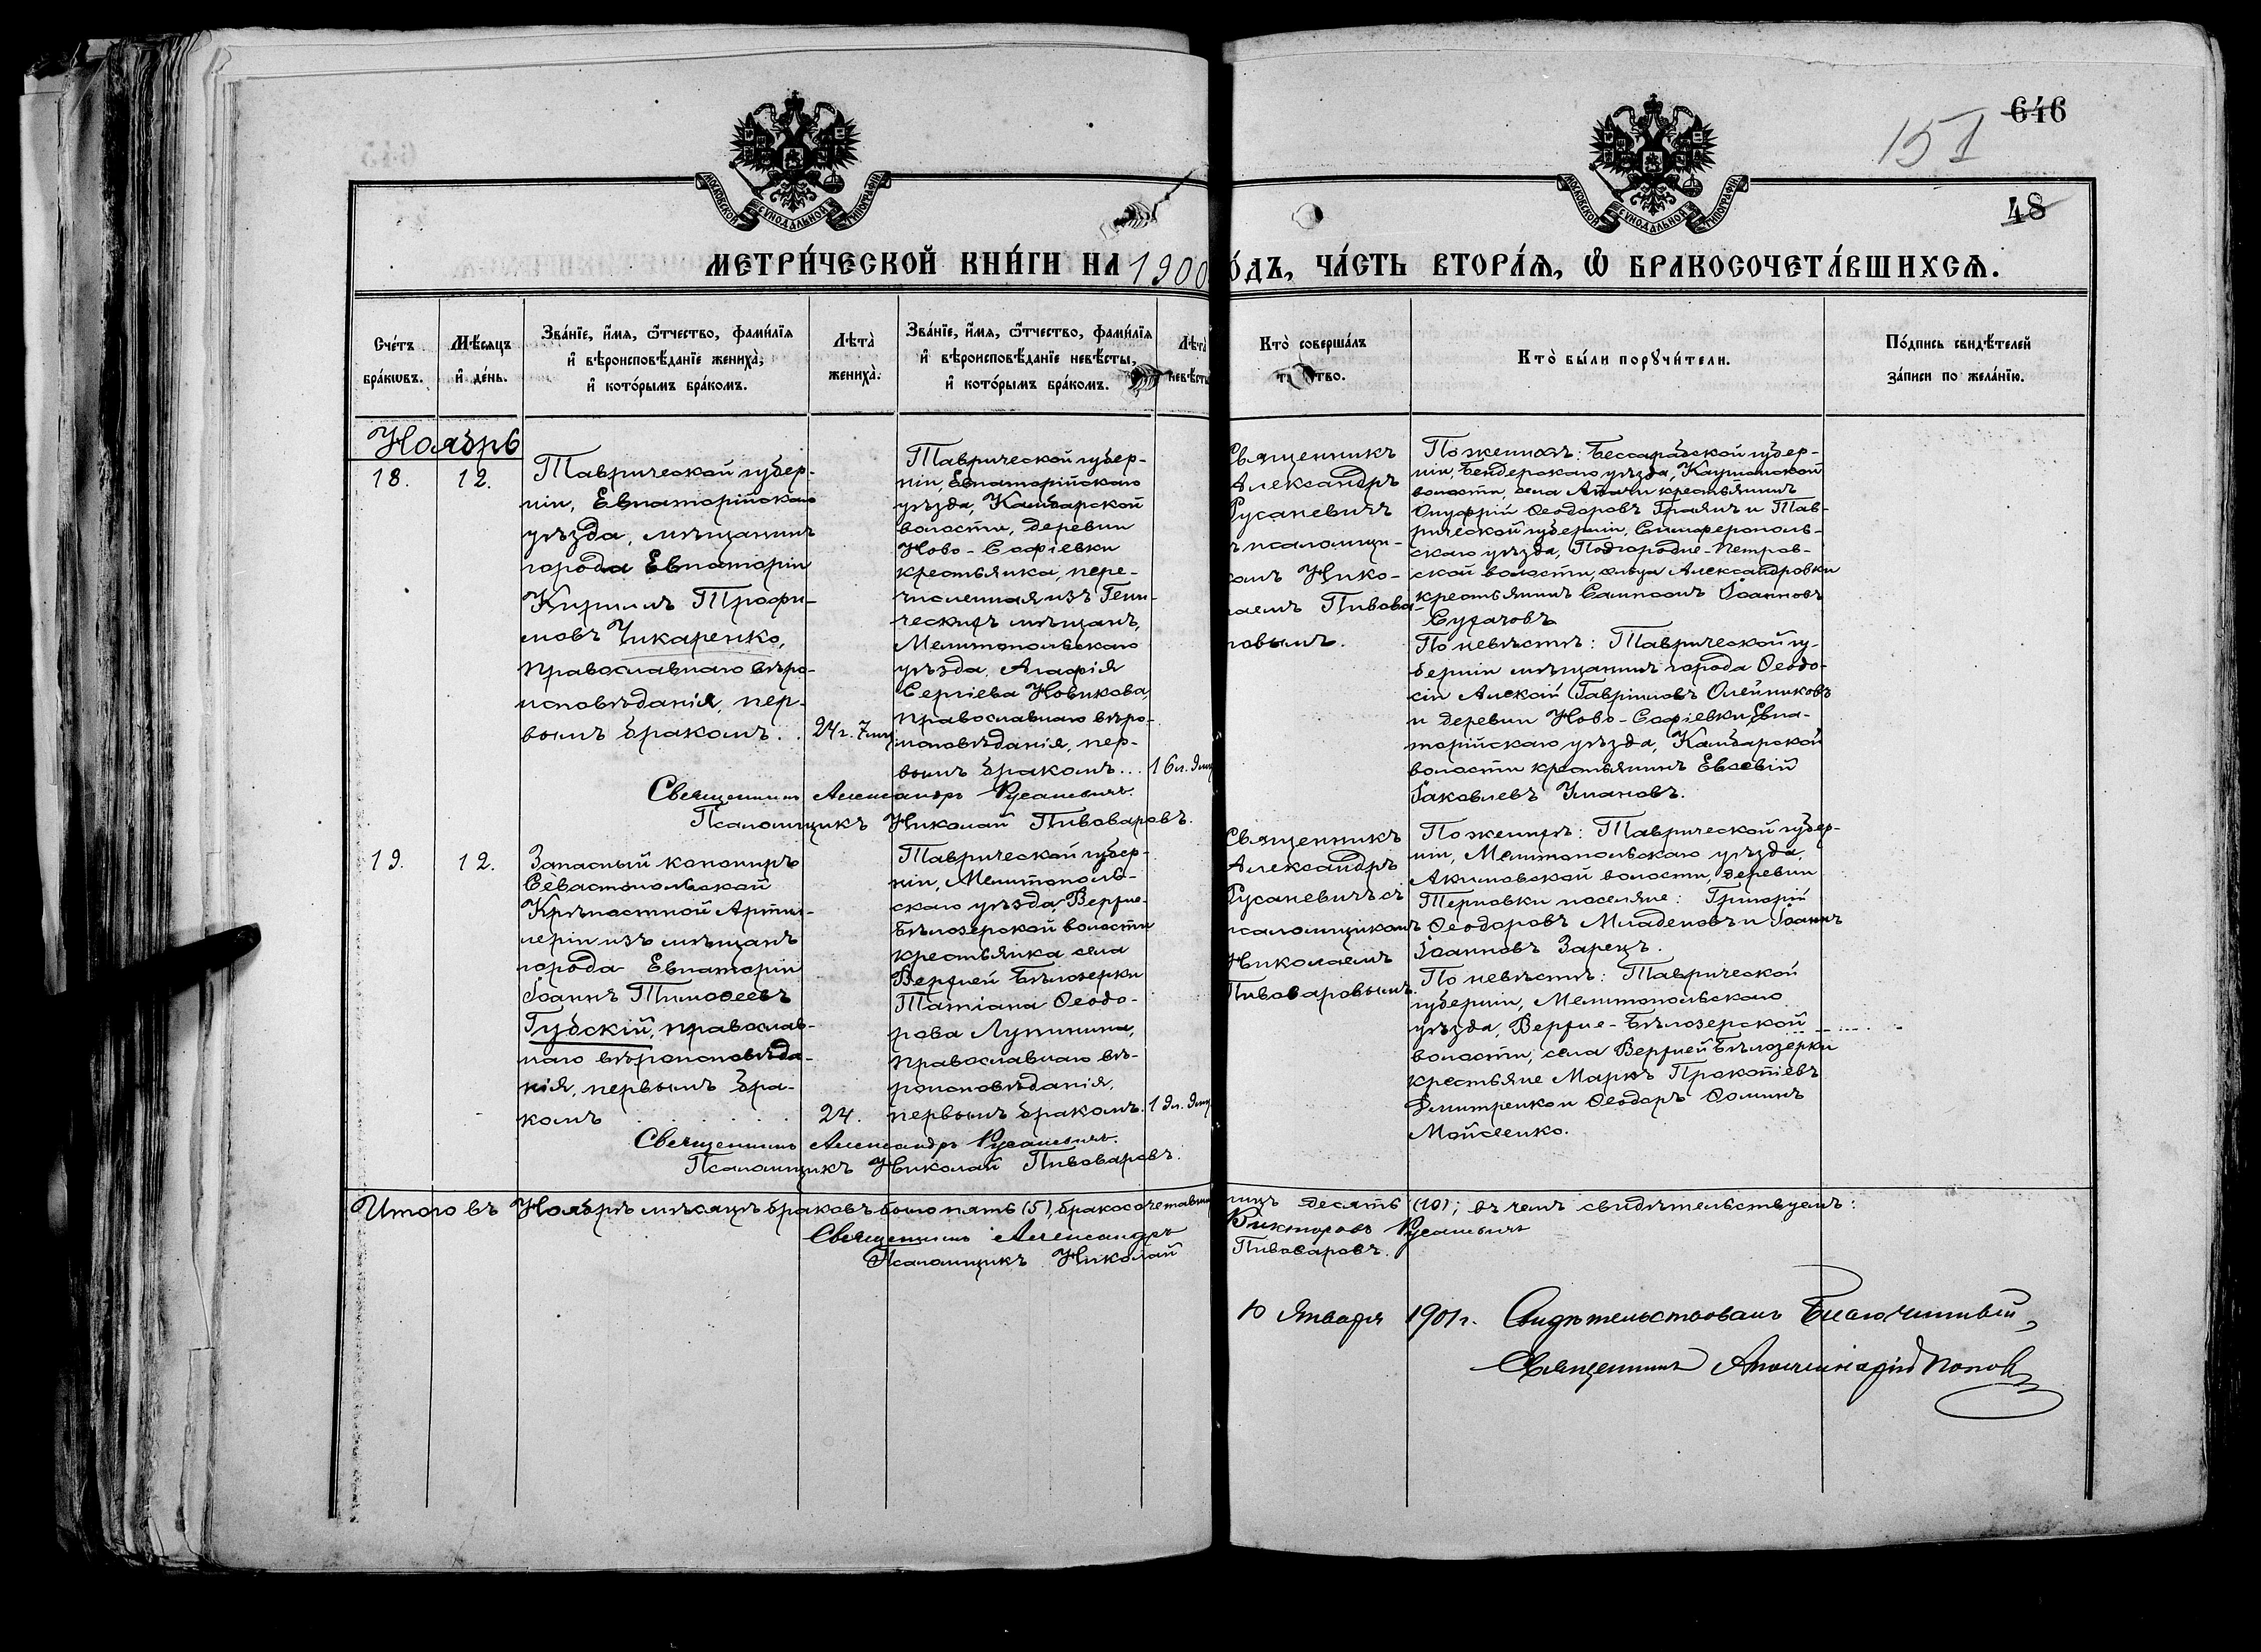 646
151
48
МОСКОВСКОЙ СѴНОДАЛЬНОЙ ТИПОГРАФІИ
МОСКОВСКОЙ СѴНОДАЛЬНОЙ ТИПОГРАФІИ
МЕТРИ́ЧЕСКОЙ КНИ́ГИ НА 1900
О́ДЪ, ЧА́СТЬ ВТОРА́Ѧ, Ѽ БРАКОСОЧЕТА́ВШИХСѦ.
Сче́тъ
бра́кѡвъ.
Мѣ́сѧцъ
и҆ де́нь.
Зва́нїе, и҆́мѧ, ѻ҆́тчество, фами́лїѧ
и҆ вѣроисповѣ́данїе жениха̀,
и҆ кото́рымъ бра́комъ.
Лѣта̀
жениха̀.
Зва́нїе, и҆́мѧ, ѻ҆́тчество, фами́лїѧ
и҆ вѣроисповѣ́данїе невѣ́сты,
и҆ кото́рымъ бра́комъ.
Лѣта̀
невѣ́сты
Кто̀ соверша́лъ
та тво.
Кто̀ бы́ли порꙋчи́тели.
По́дпись свидѣ́телей
за́писи по жела́нїю.
Ноябрь
18.
12.
Таврической губер-
ніи, Евпаторійскаго
уѣзда, мѣщанинъ
города Евпаторіи
Кириллъ Трофи-
мовъ Чикаренко,
православнаго вѣро-
исповѣданія, пер-
вымъ бракомъ . .
24 г. 7 м
Таврической губер-
ніи, Евпаторійскаго
уѣзда, Камбарской
волости, деревни
Ново-Софіевки
крестьянка, пере-
численная изъ Гени-
ческихъ мѣщанъ,
Мелитопольскаго
уѣзда, Агафія
Сергіева Новикова,
православнаго вѣро-
исповѣданія, пер-
вымъ бракомъ...
16 л.
Священникъ
Александръ
Русаневичъ
ъ псаломщи-
омъ Нико-
лаемъ Пивова-
ровымъ.
По женихѣ: Бессарабской губер-
ніи, Бендерскаго уѣзда,
волости, села крестьянинъ
Онуфрій Ѳеодоровъ и Тав-
рической губерніи, Симферополь-
скаго уѣзда, Подгородне-Петров-
ской волости, сельца Александровки
крестьянинъ Сампсонъ Іоанновъ
Сугаковъ
По невѣстѣ: Таврической гу-
берніи мѣщанинъ города Ѳеодо-
сіи Алексій Гавріиловъ Олейниковъ
и деревни Ново-Софіевки, Евпа-
торійскаго уѣзда, Камбарской
волости крестьянинъ Евсевій
Іаковлевъ Умановъ.
Священникъ Александръ Русаневичъ.
Псаломщикъ Николай Пивоваровъ.
19.
12.
Запасный канониръ
Севастопольской
Крѣпостной Артил-
леріи изъ мѣщанъ
города Евпаторіи
Іоаннъ Тимоѳеевъ
Губскій, православ-
наго вѣроисповѣда-
нія, первымъ бра-
комъ . . . .
24.
Таврической губер-
ніи, Мелитополь-
скаго уѣзда, Верхне-
Бѣлозерской волости
крестьянка села
Верхней Бѣлозерки
Татіана Ѳеодо-
рова Лупинина,
православнаго вѣ-
роисповѣданія,
первымъ бракомъ.
Священникъ
Александръ
Русаневичъ съ
псаломщикомъ
Николаемъ
Пивоваровымъ.
По женихѣ: Таврической губер-
ніи, Мелитопольскаго уѣзда,
Акимовской волости, деревни
Терновки поселяне: Григорій
Ѳеодоровъ Младеновъ и Іоаннъ
Іоанновъ Зарецъ.
По невѣстѣ: Таврической
губерніи, Мелитопольскаго
уѣзда, Верхне-Бѣлозерской
волости, села Верхней Бѣлозерки
крестьяне Маркъ Прокопіевъ
Дмитренко и Ѳеодоръ Ѳоминъ
Мойсеенко.
Священникъ Александръ Русаневичъ.
Псаломщикъ Николай Пивоваровъ.
Итого въ Ноябрѣ мѣсяцѣ браковъ было пять (5), бракосочетавши
лицъ десять (10); въ чемъ свидѣтельствуемъ:
Священникъ Александръ Викторовъ Русаневичъ
Псаломщикъ Николай Пивоваровъ.
10 Января 1901 г. Свидѣтельствовалъ Благочинный,
Священникъ Аполлинарій Поповъ